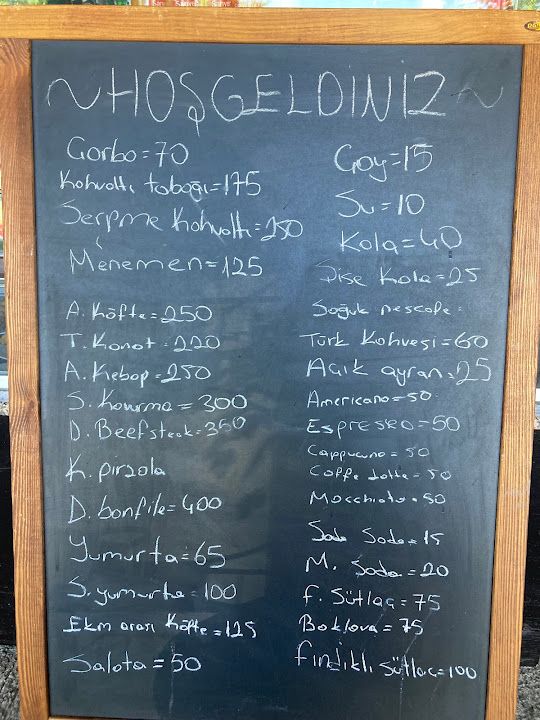 ~HOŞGELDİNİZ~
Çorba=70
Kahvaltı tabağı=175
Serpme Kahvaltı=250
Menemen=125
A. Köfte=250
T. Kanat=220
A. Kebap=250
S. Kavurma=300
D. Beefsteak=350
K. pirzola
D. bonfile=400
Yumurta=65
S. yumurta=100
Ekm arası Köfte=125
Salata=50
Çay=15
Su=10
Kola=40
Şişe Kola=25
Soğuk nescafe=
Türk Kahvesi=60
Açık ayran=25
Americano=50
Espresso=50
Cappucuno=50
Coffe latte=50
Macchiato=50
Sade Soda=15
M. Soda=20
F. Sütlaç=75
Baklava=75
fındıklı Sütlaç=100